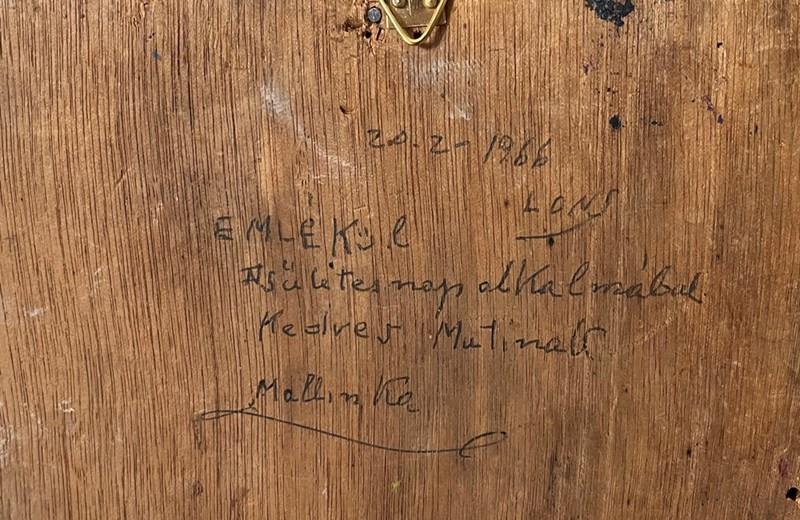 20.2-1966
LONS
EMLÉKül
A sületesnap alkalmábul
Kedves Mutinak
Mallinka